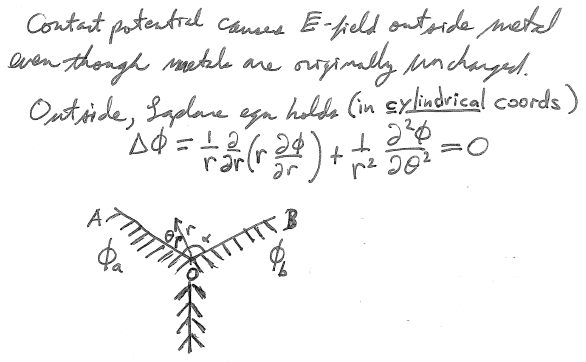 Contact potential causes E-field outside metal
even though metals are originally uncharged.
Outside, Laplace eqn holds (in cylindrical coords)
Δϕ = 1/r ∂/∂r (r ∂ϕ/∂r) + 1/r² ∂²ϕ/∂θ² = 0
A θ r α B
ϕa ϕb
O